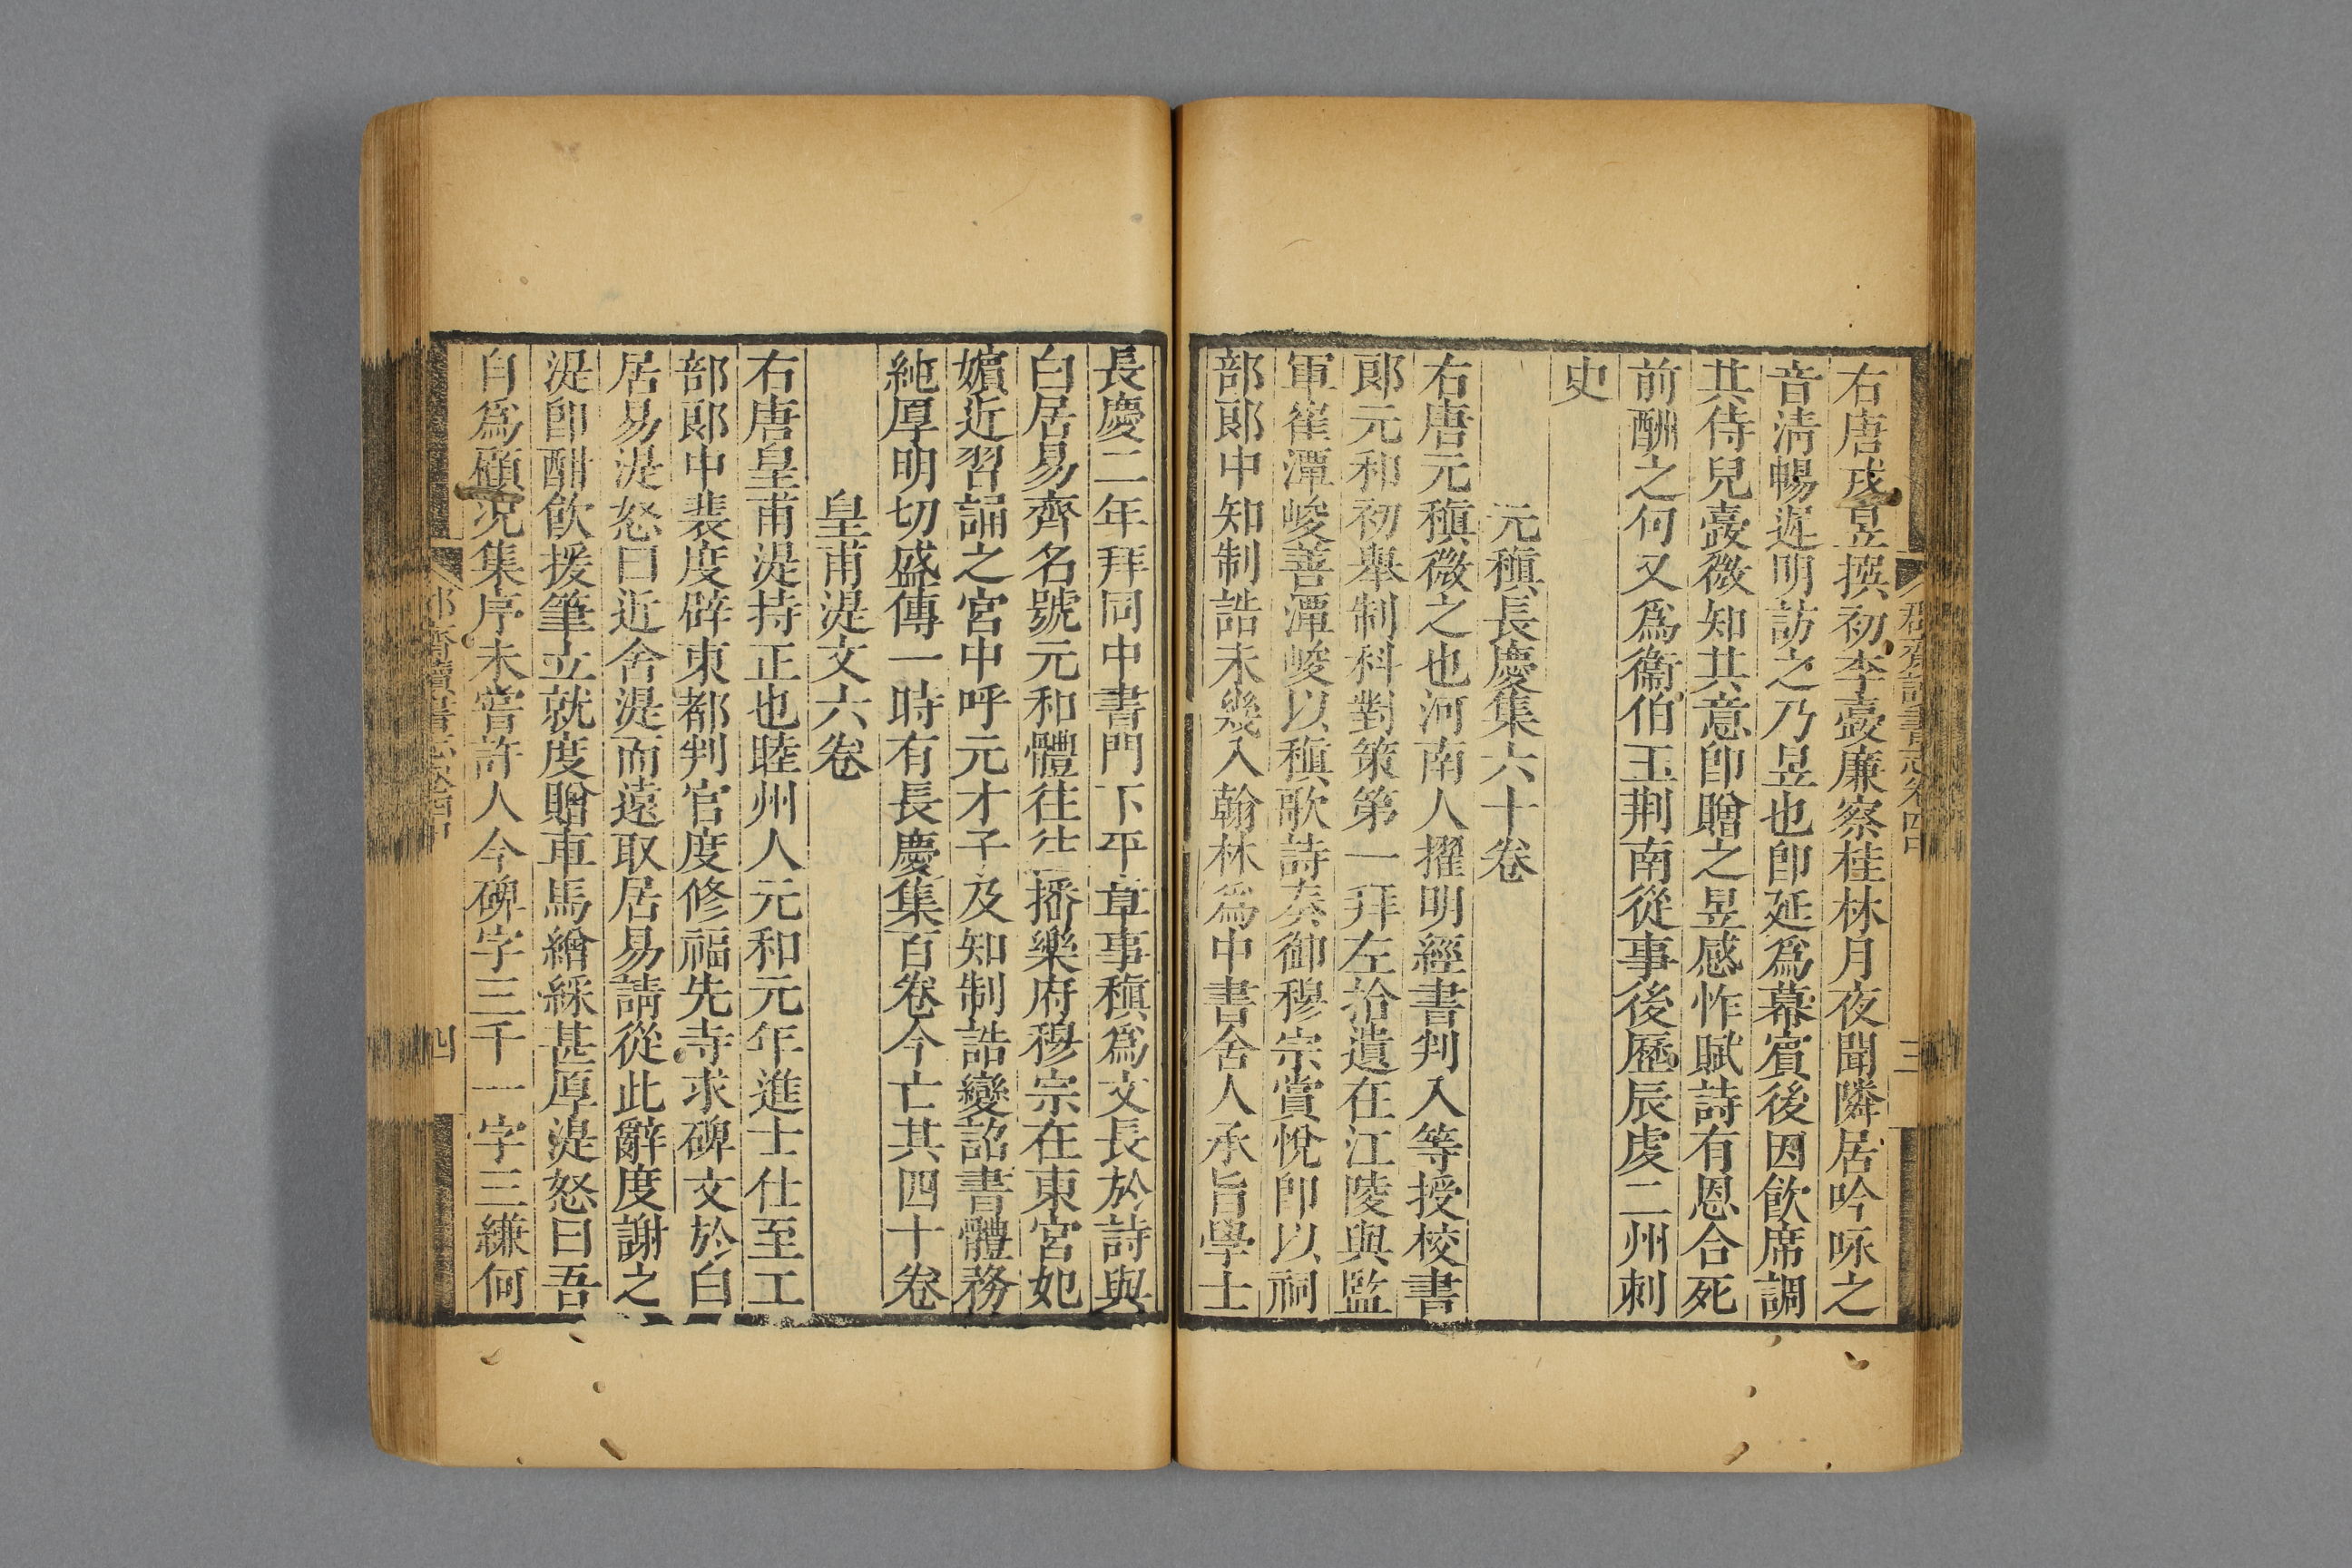 右唐戎昱撰初李夔廉察桂林月夜聞隣居吟咏之
音清暢遲明訪之乃昱也卽延爲幕賓後因飲席調
其侍兒夔微知其意卽贈之昱感怍賦詩有恩合死
前酬之何又爲衞伯玉荆南從事後歷辰虔二州刺
史
元稹長慶集六十卷
右唐元稹微之也河南人擢明經書判入等授校書
郞元和初舉制科對策第一拜左拾遺在江陵與監
軍崔潭峻善潭峻以稹歌詩奏御穆宗賞悅卽以祠
部郞中知制誥未幾入翰林爲中書舍人承旨學士
長慶二年拜同中書門下平章事稹爲文長於詩與
白居易齊名號元和體往往播樂府穆宗在東宮妃
嬪近習誦之宮中呼元才子及知制誥變詔書體務
純厚明切盛傳一時有長慶集百卷今亡其四十卷
皇甫湜文六卷
右唐皇甫湜持正也睦州人元和元年進士仕至工
部郞中裴度辟東都判官度修福先寺求碑文於白
居易湜怒曰近舍湜而遠取居易請從此辭度謝之
湜卽酣飲援筆立就度贈車馬繒綵甚厚湜怒曰吾
自爲顧况集序未嘗許人今碑字三千一字三縑何
郡齋讀書志卷四中
三
四